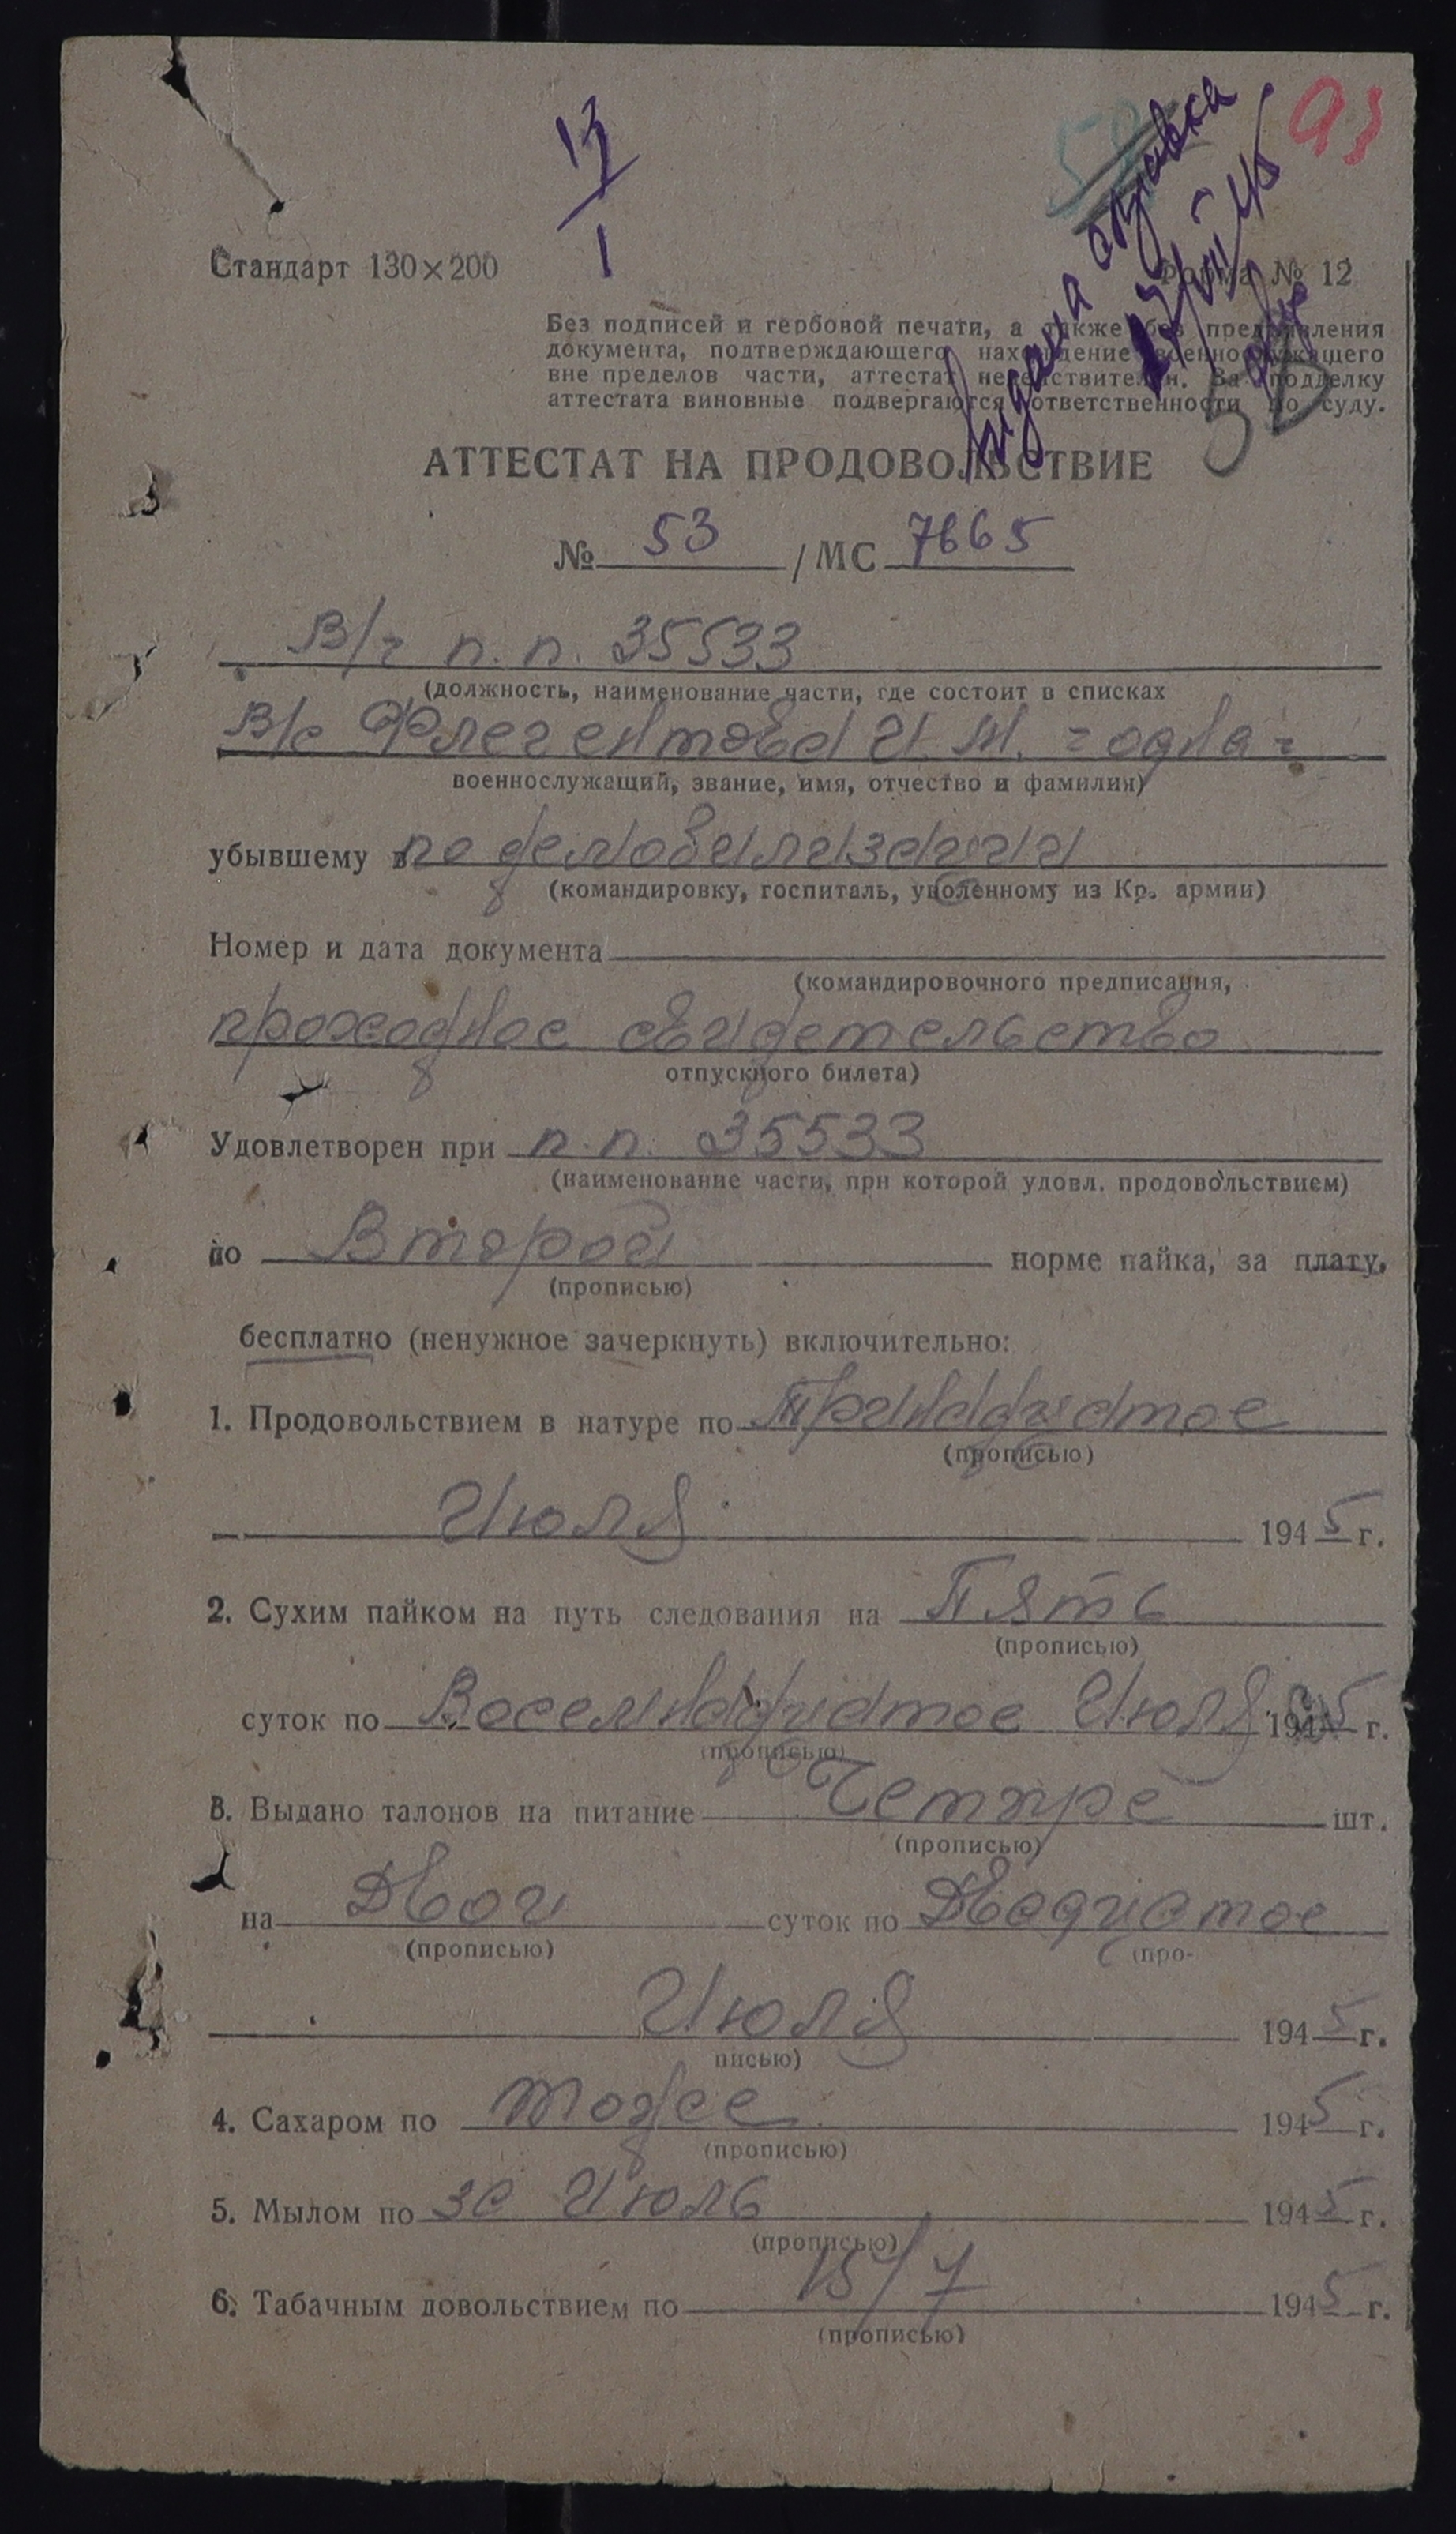 13/1
93
Выдана справка
Стандарт 130×200
Форма № 12
Без подписей и гербовой печати, а также без предъявления
документа, подтверждающего нахождение военнослужащего
вне пределов части, аттестат недействителен. За подделку
аттестата виновные подвергаются ответственности по суду.
АТТЕСТАТ НА ПРОДОВОЛЬСТВИЕ
№ 53 / МС 7665
В/ч п. п. 35533
(должность, наименование части, где состоит в списках
В/с Флегентова И. М. = одна =
военнослужащий, звание, имя, отчество и фамилия)
убывшему в по демобилизации
(командировку, госпиталь, уволенному из Кр. армии)
Номер и дата документа
(командировочного предписания,
проходное свидетельство
отпускного билета)
Удовлетворен при п. п. 35533
(наименование части, при которой удовл. продовольствием)
по Второй норме пайка, за плату,
(прописью)
бесплатно (ненужное зачеркнуть) включительно:
1. Продовольствием в натуре по Тринадцатое
(прописью)
Июля 1945 г.
2. Сухим пайком на путь следования на Пять
(прописью)
суток по Восемнадцатое Июля 1945 г.
(прописью)
3. Выдано талонов на питание Четыре шт.
(прописью)
на Двои суток по Двадцатое
(прописью) (про-
Июля 1945 г.
писью)
4. Сахаром по тоже 1945 г.
(прописью)
5. Мылом по за Июль 1945 г.
(прописью)
6. Табачным довольствием по 15/7 1945 г.
(прописью)